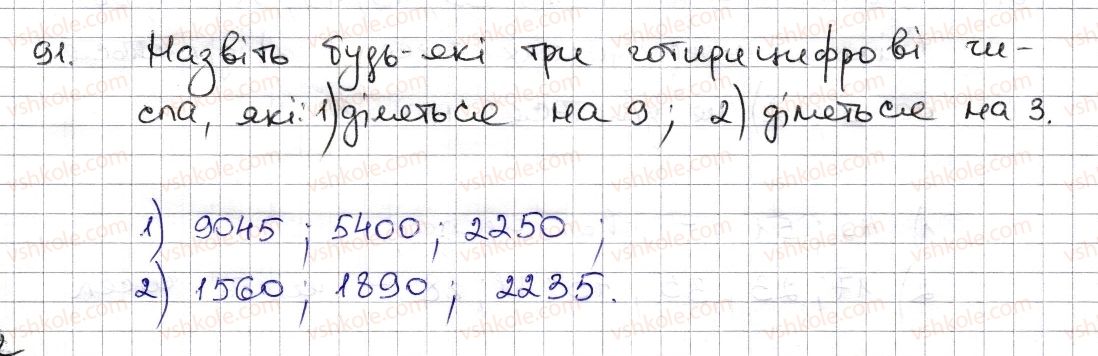 91. Назвіть будь-які три чотирицифрові чи-
сла, які: 1) діляться на 9; 2) діляться на 3.
1) 9045; 5400; 2250;
2) 1560; 1890; 2235.